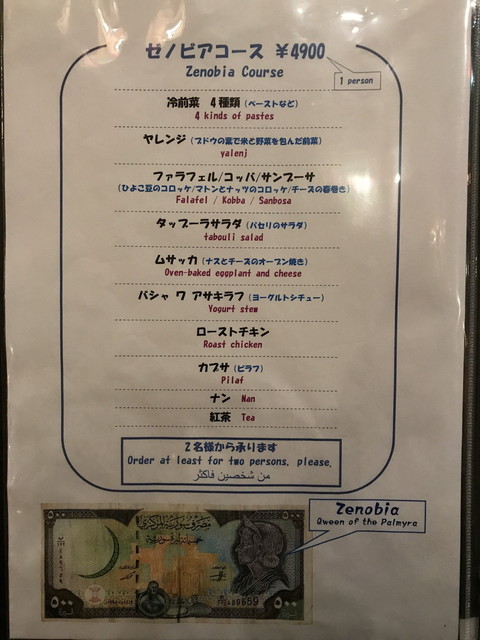 ゼノビアコース ￥4900
Zenobia Course
1 person
冷前菜 4種類 (ペーストなど)
4 kinds of pastes
ヤレンジ (ブドウの葉で米と野菜を包んだ前菜)
yalenj
ファラフェル/コッバ/サンブーサ
(ひよこ豆のコロッケ/マトンとナッツのコロッケ/チーズの春巻き)
Falafel / Kobba / Sanbosa
タッブーラサラダ (パセリのサラダ)
tabouli salad
ムサッカ (ナスとチーズのオーブン焼き)
Oven-baked eggplant and cheese
パシャ ワ アサキラフ (ヨーグルトシチュー)
Yogurt stew
ローストチキン
Roast chicken
カブサ (ピラフ)
Pilaf
ナン Nan
紅茶 Tea
2名様から承ります
Order at least for two persons, please.
من شخصين فاكثر
Zenobia
Queen of the Palmyra
٥٠٠
مصرف سورية المركزي
خمسمائة ليرة سورية
٥٠٠
٥٠٠